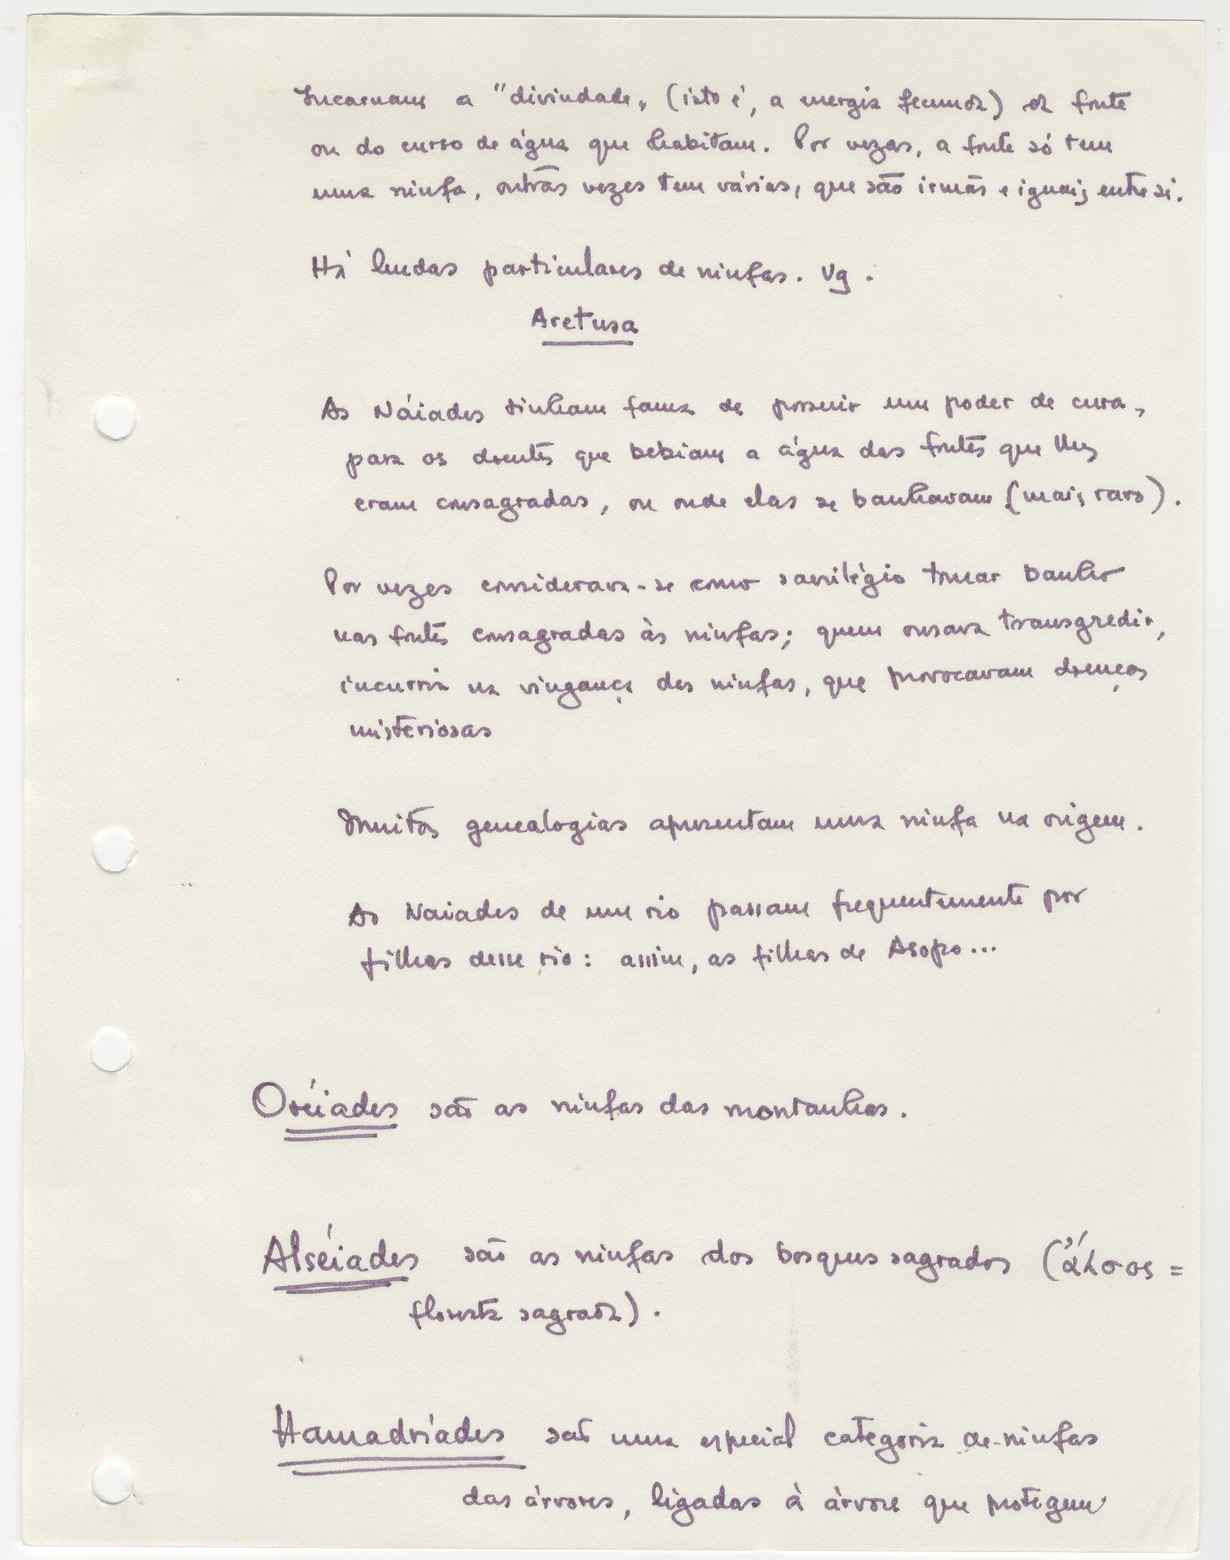 Incarnam a "divindade" (isto é, a energia fecunda) da fonte
ou do curso de água que habitam. Por vezes, a fonte só tem
uma ninfa, outras vezes tem várias, que são irmãs e iguais entre si.
Há lendas particulares de ninfas. Vg.
Aretusa
As Náiades tinham fama de possuir um poder de cura,
para os doentes que bebiam a água das fontes que lhes
eram consagradas, ou onde elas se banhavam (mais raro).
Por vezes considerava-se como sacrilégio tomar banho
nas fontes consagradas às ninfas; quem ousava transgredir,
incorria na vingança das ninfas, que provocavam doenças
misteriosas
Muitas genealogias apresentam uma ninfa na origem.
As Naiades de um rio passam frequentemente por
filhas desse rio: assim, as filhas de Asopo...
Oréiades são as ninfas das montanhas.
Alséiades são as ninfas dos bosques sagrados (ἄλσος =
floresta sagrada).
Hamadríades são uma especial categoria de ninfas
das árvores, ligadas à árvore que protegem